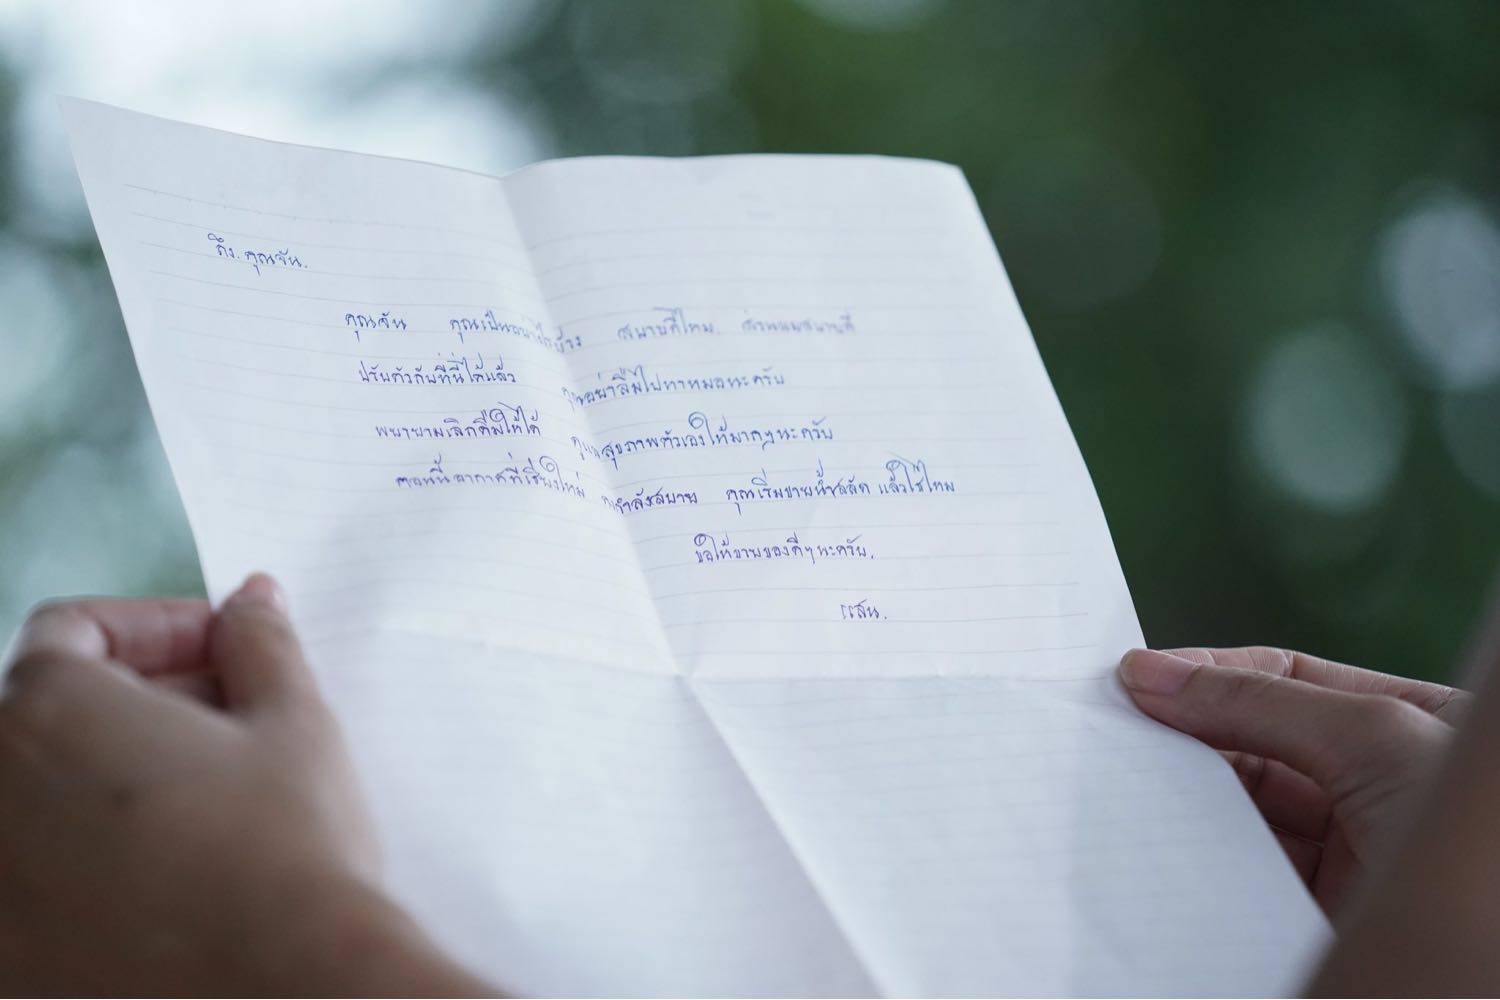 ถึง. คุณจัน.
คุณจัน คุณเป็นอย่างไรบ้าง สบายดีไหม. ส่วนผมสบายดี
ปรับตัวกับที่นี่ได้แล้ว คุณอย่าลืมไปหาหมอนะครับ
พยายามเลิกดื่มให้ได้ ดูแลสุขภาพตัวเองให้มากๆนะครับ
ตอนนี้อากาศที่เชียงใหม่ กำลังสบาย คุณเริ่มขายน้ำสลัด แล้วใช่ไหม
ขอให้ขายของดีๆนะครับ.
แสน.